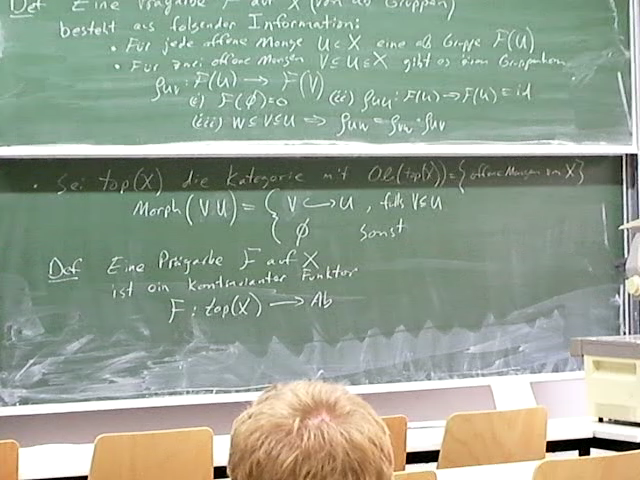 Def Eine Prägarbe F auf X (von ab Gruppen)
besteht aus folgender Information:
• Für jede offene Menge U ⊂ X eine ab Gruppe F(U)
• Für zwei offene Mengen V ⊆ U ⊆ X gibt es einen
ρ_UV : F(U) → F(V)
(i) F(∅)=0 (ii) ρ_UU : F(U) → F(U) = id
(iii) W ⊆ V ⊆ U ⇒ ρ_UW = ρ_VW · ρ_UV
• Sei top(X) die Kategorie mit Ob(top(X)) = { offene Mengen von X }
Morph(V,U) = { V ↪ U , falls V ⊆ U
{ ∅ sonst
Def Eine Prägarbe F auf X
ist ein kontravarianter Funktor
F : top(X) → Ab